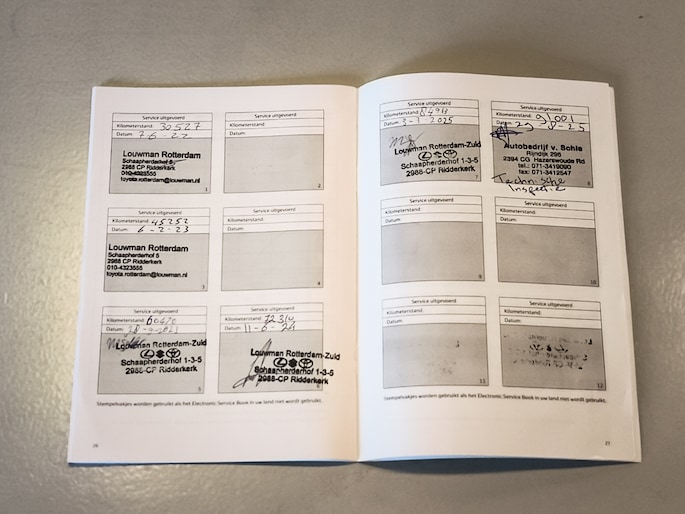 Service uitgevoerd
Kilometerstand: 30527
Datum: 7-6-22
Louwman Rotterdam
Schaapherderhof 5
2988 CP Ridderkerk
010-4323555
toyota.rotterdam@louwman.nl
1
Service uitgevoerd
Kilometerstand:
Datum:
2
Service uitgevoerd
Kilometerstand: 45252
Datum: 6-2-23
Louwman Rotterdam
Schaapherderhof 5
2988 CP Ridderkerk
010-4323555
toyota.rotterdam@louwman.nl
3
Service uitgevoerd
Kilometerstand:
Datum:
4
Service uitgevoerd
Kilometerstand: 60470
Datum:
Louwman Rotterdam-Zuid
Schaapherderhof 1-3-5
2988-CP Ridderkerk
5
Service uitgevoerd
Kilometerstand: 72310
Datum: 11-6-24
Louwman Rotterdam-Zuid
Schaapherderhof 1-3-5
2988-CP Ridderkerk
6
Stempelvakjes worden gebruikt als het Electronic Service Book in uw land niet wordt gebruikt.
26
Service uitgevoerd
Kilometerstand: 84913
Datum: 3-1 2025
Louwman Rotterdam-Zuid
Schaapherderhof 1-3-5
2988-CP Ridderkerk
7
Service uitgevoerd
Kilometerstand: 91001
Datum: 29-8-25
Autobedrijf v. Schie
Rijndijk 296
2394 CG Hazerswoude Rd
tel.: 071-3419090
fax: 071-3412547
Technische
Inspectie
8
Service uitgevoerd
Kilometerstand:
Datum:
9
Service uitgevoerd
Kilometerstand:
Datum:
10
Service uitgevoerd
Kilometerstand:
Datum:
11
Service uitgevoerd
Kilometerstand:
Datum:
12
Stempelvakjes worden gebruikt als het Electronic Service Book in uw land niet wordt gebruikt.
27